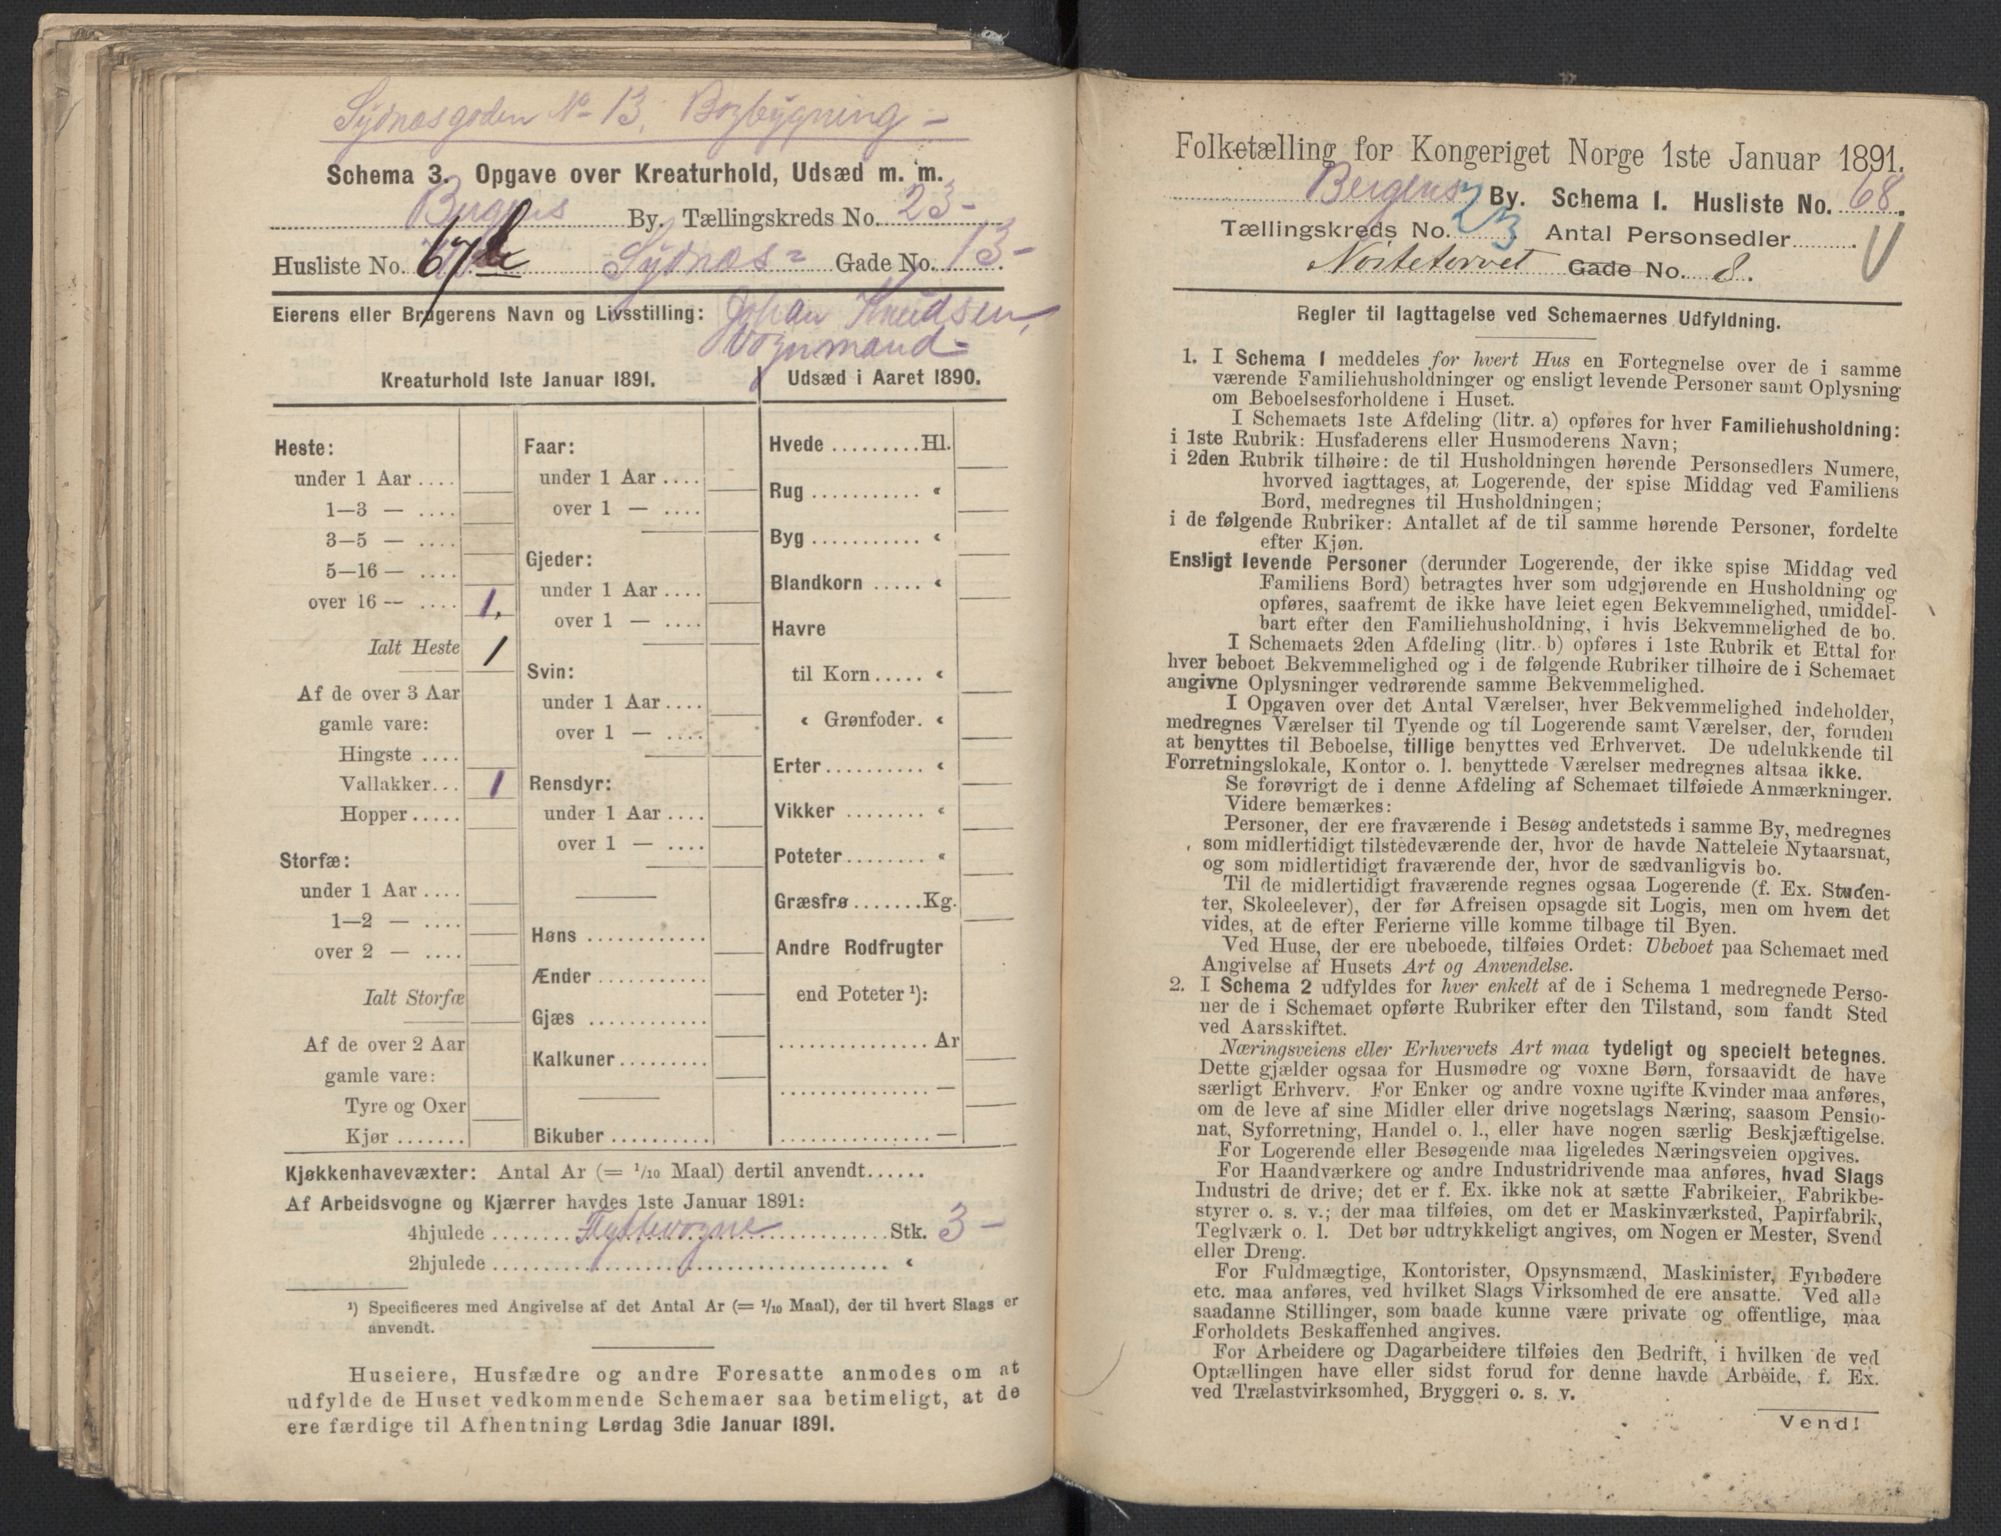 Sydnæsgaden No 13, Bagbygning –
Schema 3. Opgave over Kreaturhold, Udsæd m. m.
Bergens By. Tællingskreds No. 23-
Husliste No. 67b Sydnæs- Gade No. 13-.
Eierens eller Brugerens Navn og Livsstilling: Johan Knudsen,
Vognmand-
Kreaturhold 1ste Januar 1891.
Heste:
under 1 Aar ....
1—3 — ....
3—5 — ....
5—16 — ....
over 16 — .... 1.
Ialt Heste 1
Af de over 3 Aar
gamle vare:
Hingste ....
Vallakker... 1
Hopper .....
Storfæ:
under 1 Aar ....
1—2 — ....
over 2 — ....
Ialt Storfæ
Af de over 2 Aar
gamle vare:
Tyre og Oxer
Kjør .......
Faar:
under 1 Aar ....
over 1 — ....
Gjeder:
under 1 Aar ....
over 1 — ....
Svin:
under 1 Aar ....
over 1 — ....
Rensdyr:
under 1 Aar ....
over 1 — ....
Høns ............
Ænder ............
Gjæs ............
Kalkuner .........
Bikuber ..........
Udsæd i Aaret 1890.
Hvede .........Hl.
Rug ........... «
Byg ........... «
Blandkorn ..... «
Havre
til Korn ..... «
« Grønfoder. «
Erter .......... «
Vikker ........ «
Poteter ........ «
Græsfrø .......Kg.
Andre Rodfrugter
end Poteter ¹):
............... Ar
............... —
............... —
Kjøkkenhavevæxter: Antal Ar (= 1/10 Maal) dertil anvendt......
Af Arbeidsvogne og Kjærrer havdes 1ste Januar 1891:
4hjulede ........ Flyttevogne ........ Stk. 3 –
2hjulede ........................ «
¹) Specificeres med Angivelse af det Antal Ar (= 1/10 Maal), der til hvert Slags er
anvendt.
Huseiere, Husfædre og andre Foresatte anmodes om at
udfylde de Huset vedkommende Schemaer saa betimeligt, at de
ere færdige til Afhentning Lørdag 3die Januar 1891.
Folketælling for Kongeriget Norge 1ste Januar 1891.
Bergens By. Schema 1. Husliste No. 68.
Tællingskreds No. 23 Antal Personsedler.........
Nøstetorvet Gade No. 8.
Regler til Iagttagelse ved Schemaernes Udfyldning.
1. I Schema 1 meddeles for hvert Hus en Fortegnelse over de i samme
værende Familiehusholdninger og ensligt levende Personer samt Oplysning
om Beboelsesforholdene i Huset.
I Schemaets 1ste Afdeling (litr. a) opføres for hver Familiehusholdning:
i 1ste Rubrik: Husfaderens eller Husmoderens Navn;
i 2den Rubrik tilhøire: de til Husholdningen hørende Personsedlers Numere,
hvorved iagttages, at Logerende, der spise Middag ved Familiens
Bord, medregnes til Husholdningen;
i de følgende Rubriker: Antallet af de til samme hørende Personer, fordelte
efter Kjøn.
Ensligt levende Personer (derunder Logerende, der ikke spise Middag ved
Familiens Bord) betragtes hver som udgjørende en Husholdning og
opføres, saafremt de ikke have leiet egen Bekvemmelighed, umiddel-
bart efter den Familiehusholdning, i hvis Bekvemmelighed de bo.
I Schemaets 2den Afdeling (litr. b) opføres i 1ste Rubrik et Ettal for
hver beboet Bekvemmelighed og i de følgende Rubriker tilhøire de i Schemaet
angivne Oplysninger vedrørende samme Bekvemmelighed.
I Opgaven over det Antal Værelser, hver Bekvemmelighed indeholder,
medregnes Værelser til Tyende og til Logerende samt Værelser, der, foruden
at benyttes til Beboelse, tillige benyttes ved Erhvervet. De udelukkende til
Forretningslokale, Kontor o. l. benyttede Værelser medregnes altsaa ikke.
Se forøvrigt de i denne Afdeling af Schemaet tilføiede Anmærkninger.
Videre bemærkes:
Personer, der ere fraværende i Besøg andetsteds i samme By, medregnes
som midlertidigt tilstedeværende der, hvor de havde Natteleie Nytaarsnat,
og som midlertidigt fraværende der, hvor de sædvanligvis bo.
Til de midlertidigt fraværende regnes ogsaa Logerende (f. Ex. Studen-
ter, Skoleelever), der før Afreisen opsagde sit Logis, men om hvem det
vides, at de efter Ferierne ville komme tilbage til Byen.
Ved Huse, der ere ubeboede, tilføies Ordet: Ubeboet paa Schemaet med
Angivelse af Husets Art og Anvendelse.
2. I Schema 2 udfyldes for hver enkelt af de i Schema 1 medregnede Perso-
ner de i Schemaet opførte Rubriker efter den Tilstand, som fandt Sted
ved Aarsskiftet.
Næringsveiens eller Erhvervets Art maa tydeligt og specielt betegnes.
Dette gjælder ogsaa for Husmødre og voxne Børn, forsaavidt de have
særligt Erhverv. For Enker og andre voxne ugifte Kvinder maa anføres,
om de leve af sine Midler eller drive nogetslags Næring, saasom Pensio-
nat, Syforretning, Handel o. l., eller have nogen særlig Beskjæftigelse.
For Logerende eller Besøgende maa ligeledes Næringsveien opgives.
For Haandværkere og andre Industridrivende maa anføres, hvad Slags
Industri de drive; det er f. Ex. ikke nok at sætte Fabrikeier, Fabrikbe-
styrer o. s. v.; der maa tilføies, om det er Maskinværksted, Papirfabrik,
Teglværk o. l. Det bør udtrykkeligt angives, om Nogen er Mester, Svend
eller Dreng.
For Fuldmægtige, Kontorister, Opsynsmænd, Maskinister, Fyrbødere
etc. maa anføres, ved hvilket Slags Virksomhed de ere ansatte. Ved alle
saadanne Stillinger, som baade kunne være private og offentlige, maa
Forholdets Beskaffenhed angives.
For Arbeidere og Dagarbeidere tilføies den Bedrift, i hvilken de ved
Optællingen have eller sidst forud for denne havde Arbeide, f. Ex.
ved Trælastvirksomhed, Bryggeri o. s. v.
Vend!